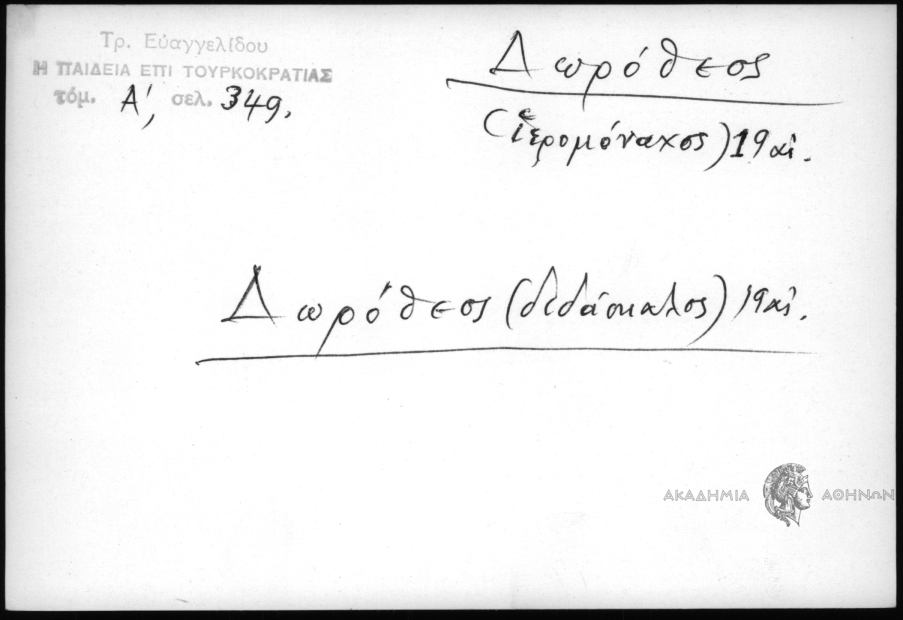 Τρ. Εὐαγγελίδου
Η ΠΑΙΔΕΙΑ ΕΠΙ ΤΟΥΡΚΟΚΡΑΤΙΑΣ
τόμ. Α', σελ. 349.
Δωρόθεος
(ἱερομόναχος) 19 αἰ.
Δωρόθεος (διδάσκαλος) 19 αἰ.
ΑΚΑΔΗΜΙΑ ΑΘΗΝΩΝ